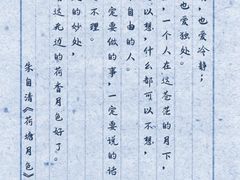 ，也爱冷静；
，也爱独处。
，一个人在这苍茫的月下，
以想，什么都可以不想，
自由的人。
定要做的事，一定要说的话
不理。
的妙处，
这无边的荷香月色好了。
朱自清《荷塘月色》